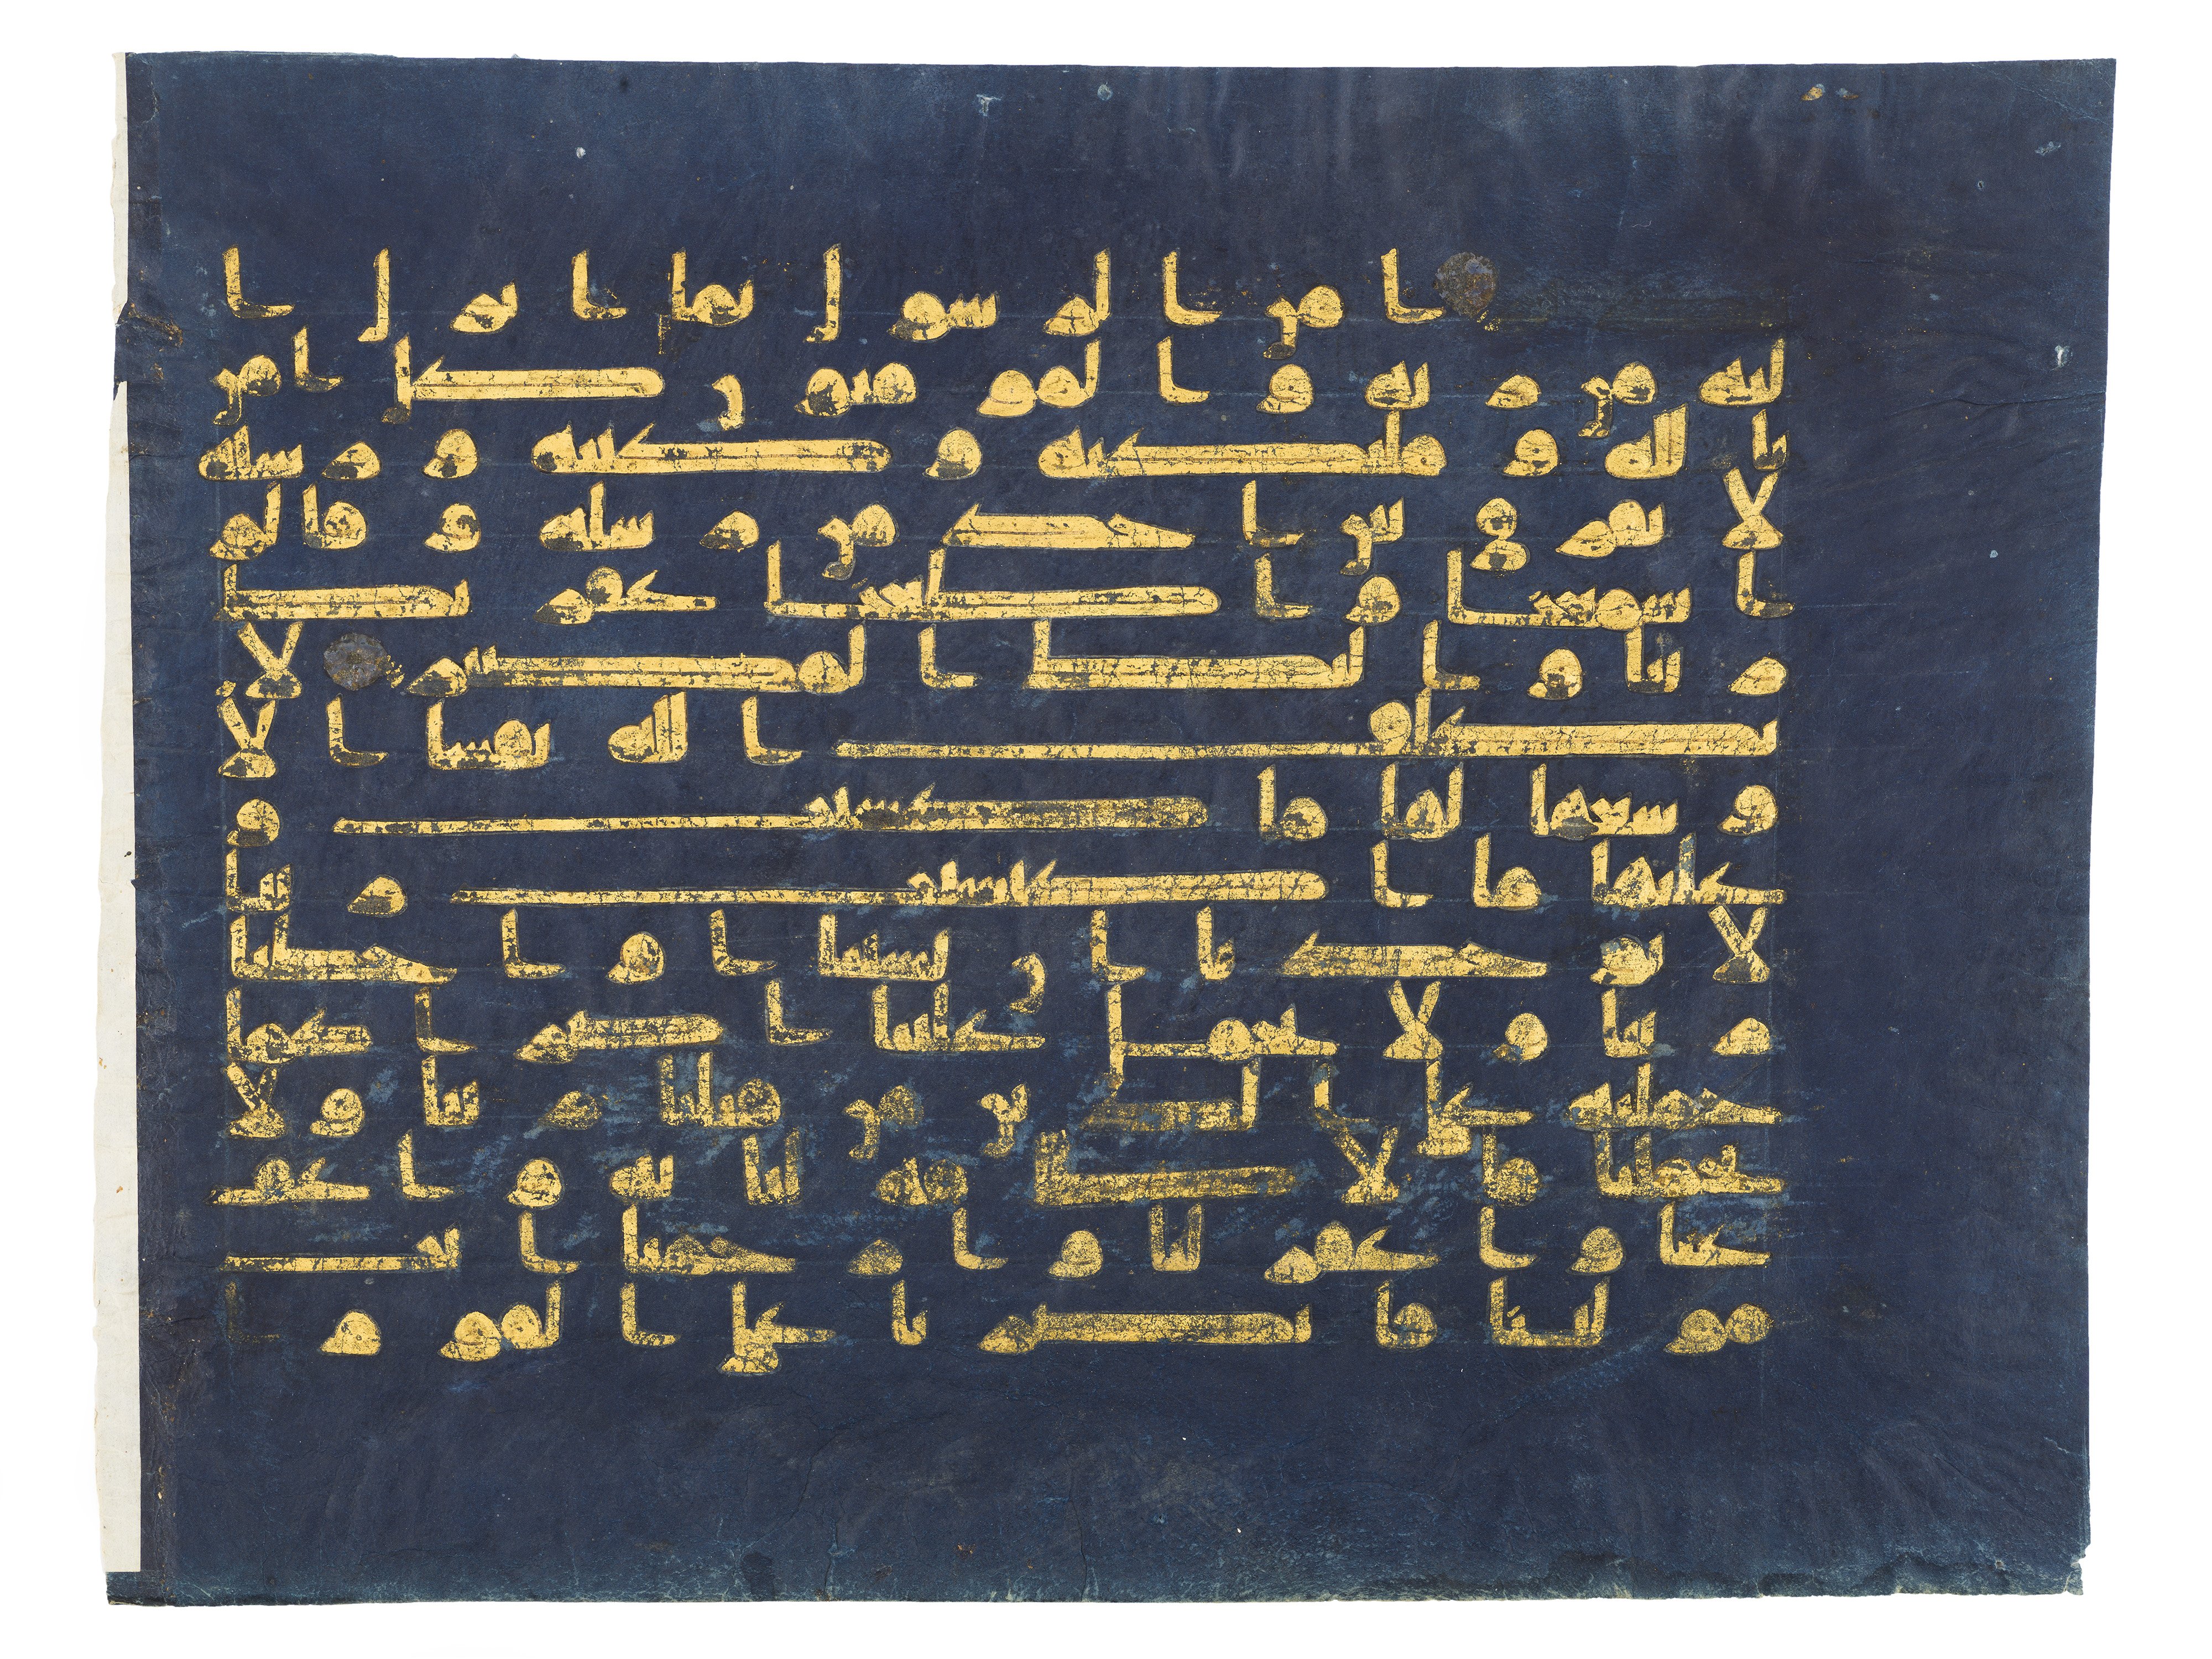 امن الرسول بما انزل ا
ليه من ربه والمومنون كل امن
بالله وملئكته وكتبه ورسله
لا نفرق بين احد من رسله وقالو
ا سمعنا واطعنا غفرنك
ربنا واليك المصير لا
يكلف الله نفسا الا
وسعها لها ما كسبت و
عليها ما اكتسبت ربنا
لا تواخذنا ان نسينا او اخطا
نا ربنا ولا تحمل علينا اصرا كما
حملته على الذين من قبلنا ربنا ولا
تحملنا ما لا طاقة لنا به واعف
عنا واغفر لنا وارحمنا انت
مولينا فانصرنا على القوم ا